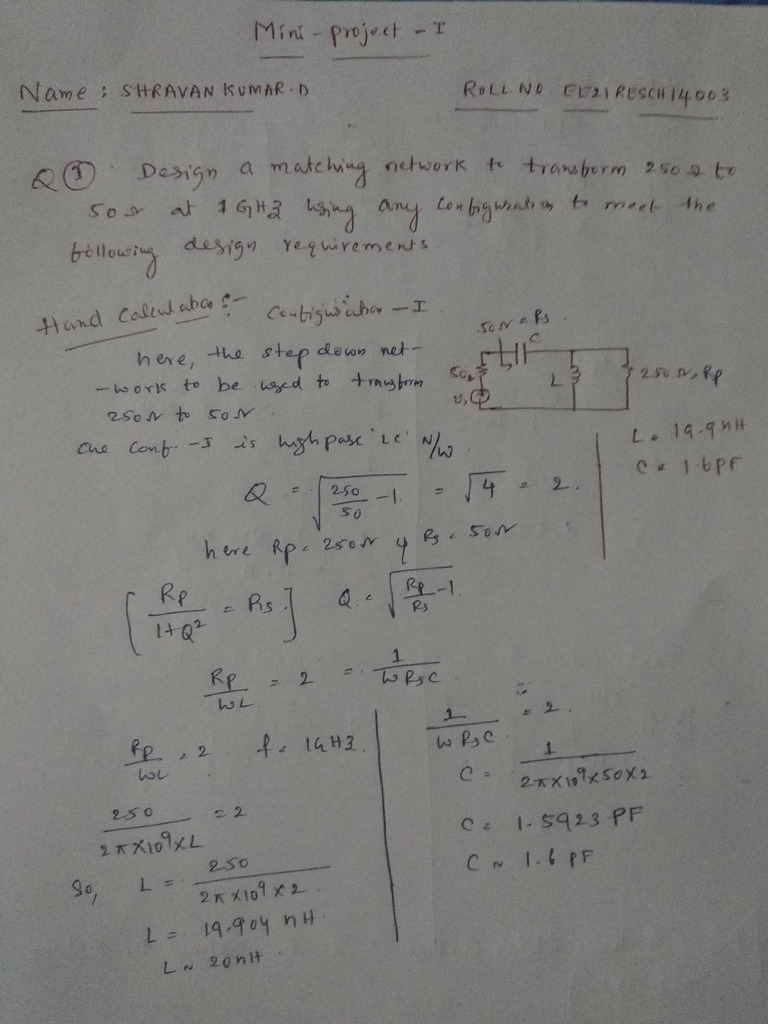 Mini - project - I
Name : SHRAVAN KUMAR.D
ROLL NO EE21RESCH14003
Q① Design a matching network to transform 250Ω to
50Ω at 1GHz using any configuration to meet the
following design requirements.
Hand Calculation :- Configuration - I
here, the step down net-
-work to be used to transform
250Ω to 50Ω.
the conf. -I is highpass 'LC' N/W.
50Ω = Rs.
C
50Ω
L
250Ω, Rp
L = 19.9 nH
C = 1.6 PF
Q = √(250/50 - 1) = √4 = 2.
here Rp = 250Ω & Rs = 50Ω
[Rp/(1+Q²) = Rs.] Q = √(Rp/Rs - 1).
Rp/ωL = 2 = 1/(ωRsC)
Rp/ωL = 2 f = 1GHz.
250/(2π×10⁹×L) = 2
So, L = 250/(2π×10⁹×2)
L = 19.904 nH.
L ~ 20nH.
1/(ωRsC) = 2.
C = 1/(2π×10⁹×50×2)
C = 1.5923 PF
C ~ 1.6 PF